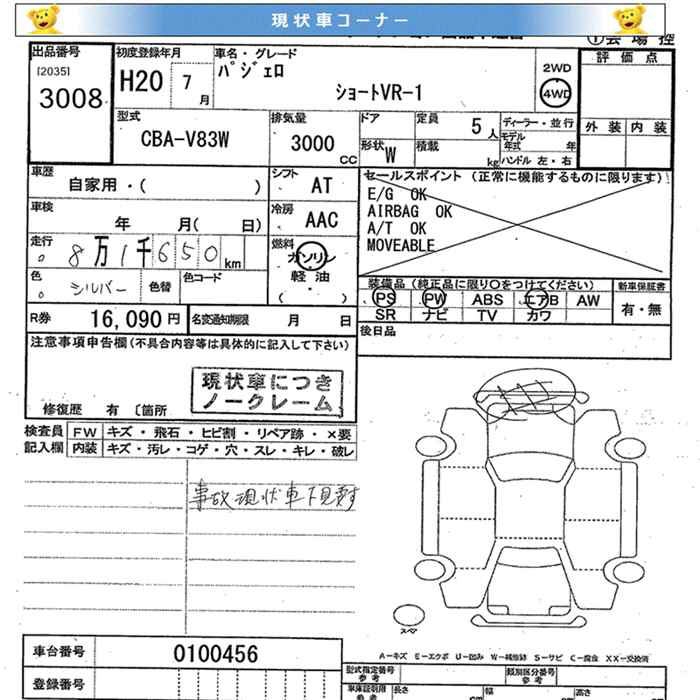 現状車コーナー
出品番号 初度登録年月 車名・グレード 評価点
[2035] パジェロ 2WD
3008 H20 7月 ショートVR-1 4WD
型式 排気量 ドア 定員 5人 ディーラー・並行 外装 内装
CBA-V83W 3000cc 形状 W 積載 kg モデル年式 年
ハンドル 左・右
車歴 自家用・( ) シフト AT セールスポイント (正常に機能するものに限ります)
車検 年 月( 日) 冷房 AAC E/G OK
AIRBAG OK
A/T OK
MOVEABLE
走行 8万1千650km 燃料 ガソリン
軽油
( )
色 シルバー 色替 色コード 装備品 (純正品に限り○をつけてください) 新車保証書
PS PW ABS エアB AW 有・無
R券 16,090円 名変通知期限 月 日 SR ナビ TV カワ
注意事項申告欄(不具合内容等は具体的に記入して下さい) 後日品
現状車につき
ノークレーム
修復歴 有 〔箇所
検査員 FW キズ・飛石・ヒビ割・リペア跡・×要
記入欄 内装 キズ・汚レ・コゲ・穴・スレ・キレ・破レ
事故現状車下見要す
スペア
A-キズ E-エクボ U-凹み W-補修跡 S-サビ C-腐食 XX-交換済
車台番号 0100456
型式指定番号 参考 類別区分番号 参考
登録番号 車庫証明用 参考 長さ 幅 高さ